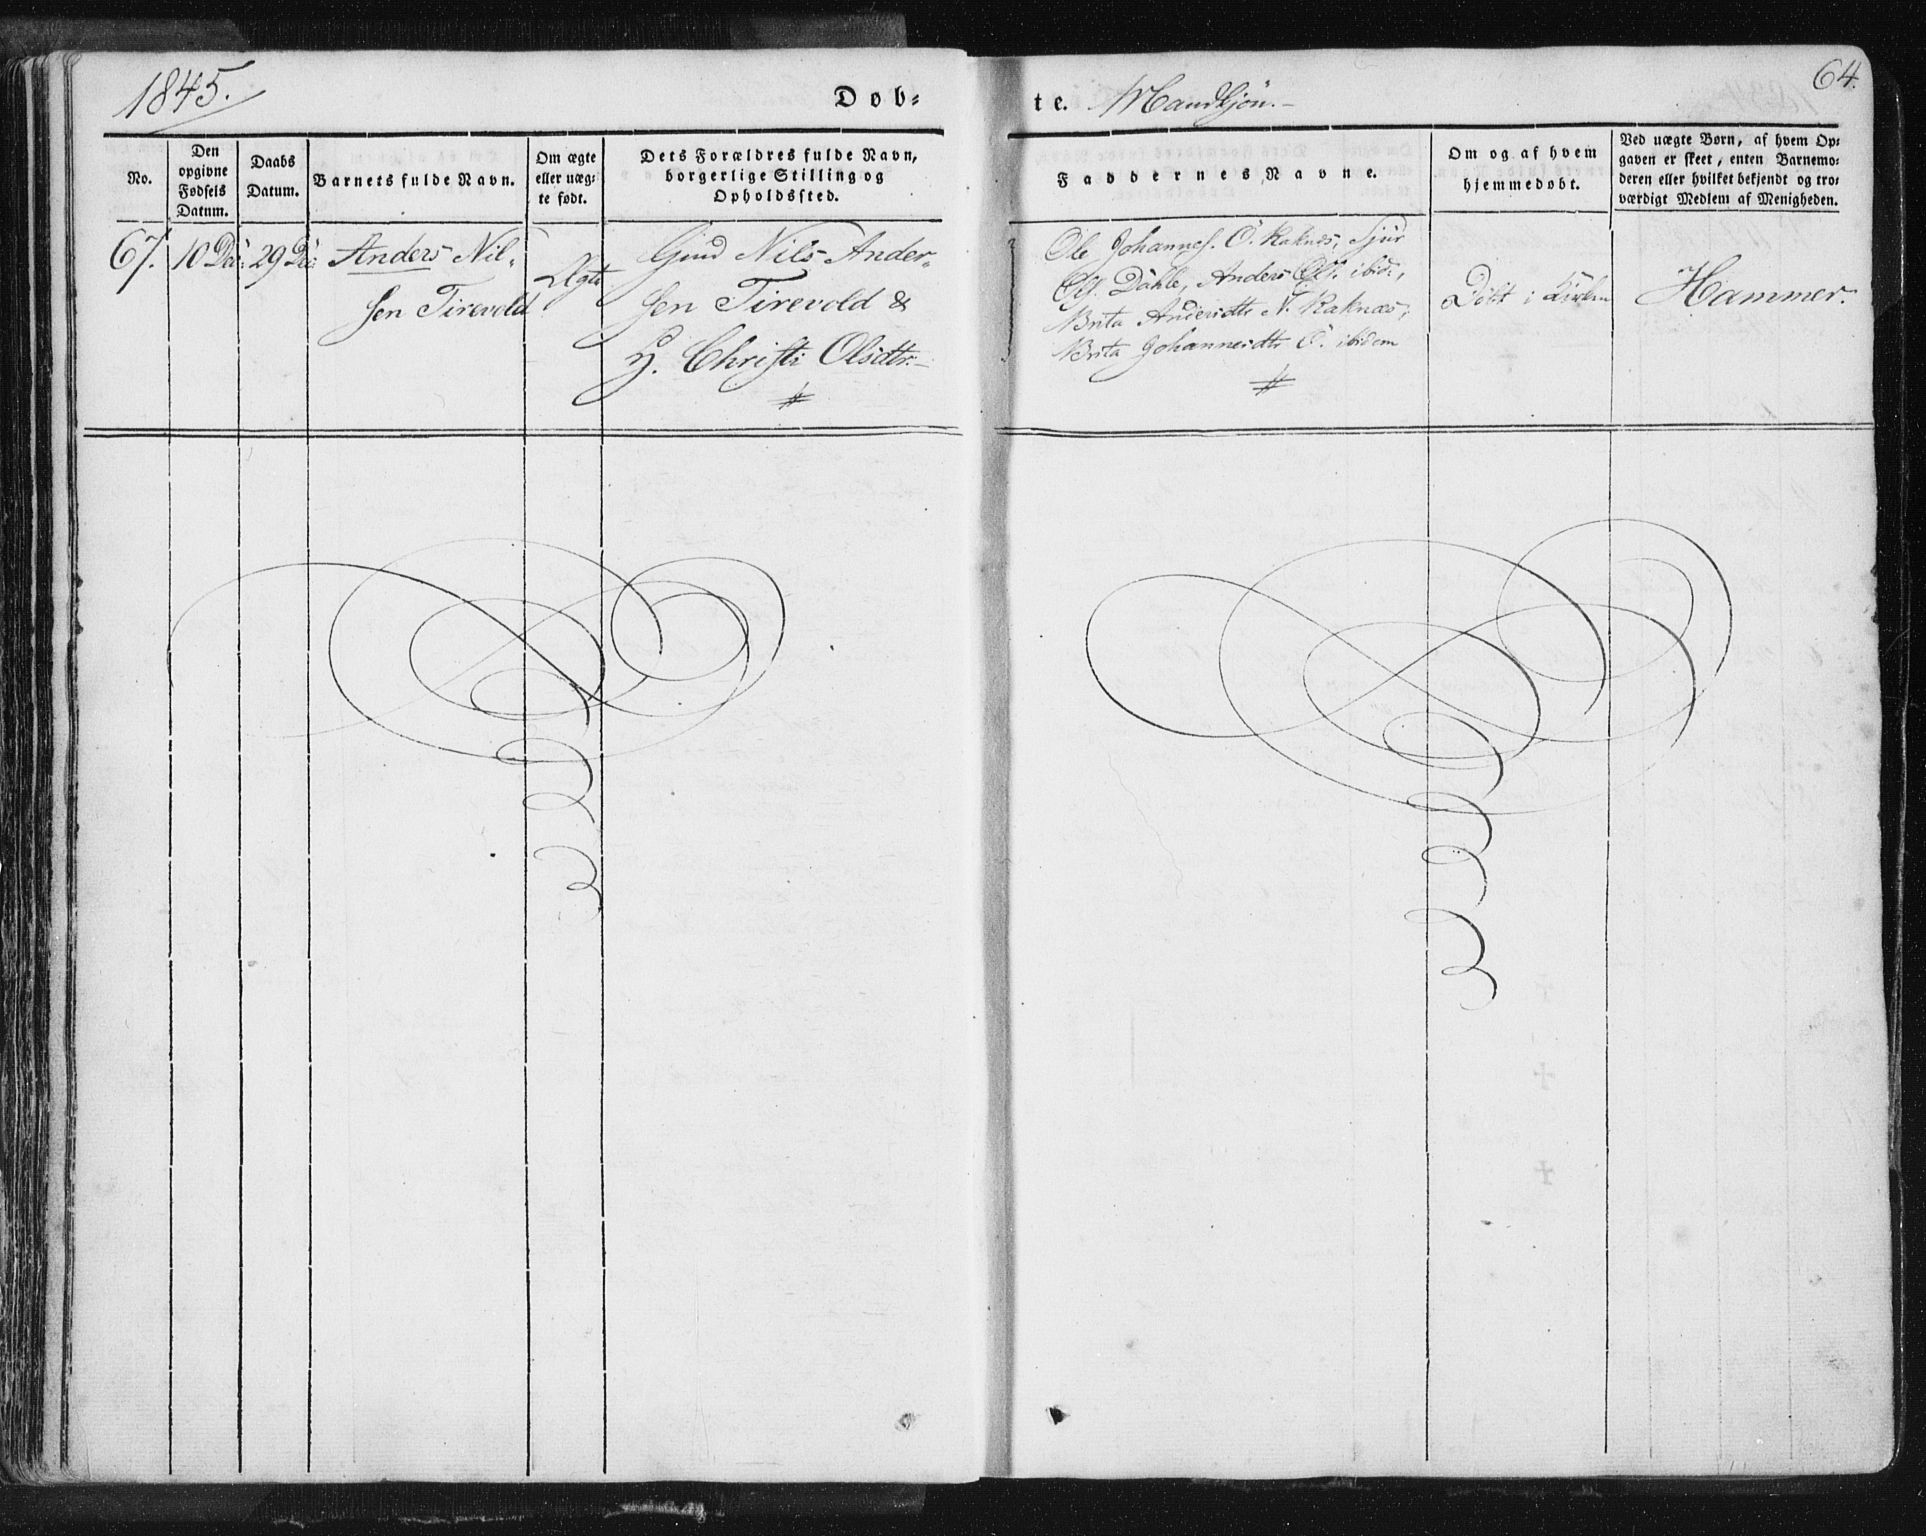 1845.
Døb-
te. Mandkjön.
64.
No.
Den
opgivne
Fødsels
Datum.
Daabs
Datum.
Barnets fulde Navn.
Om ægte
eller uæg-
te født.
Dets Forældres fulde Navn,
borgerlige Stilling og
Opholdssted.
Faddernes Navne.
Om og af hvem
hjemmedøbt.
Ved uægte Børn, af hvem Op-
gaven er skeet, enten Barnemo-
deren eller hvilket bekjendt og tro-
værdigt Medlem af Menigheden.
67.
10 Dec:
29 Dec:
Anders Nil-
sen Tirevold
Ægte
Gmd Nils Ander-
sen Tirevold &
H. Christi Olsdtr.
#
Ole Johannes. Ö. Raknes, Sjur
Ols. Dahle, Anders Ols. ibid.,
Brita Andersdtr N. Raknæs,
Brita Johannesdtr Ö. ibidem
#
Döbt i Kirken
Hammer.